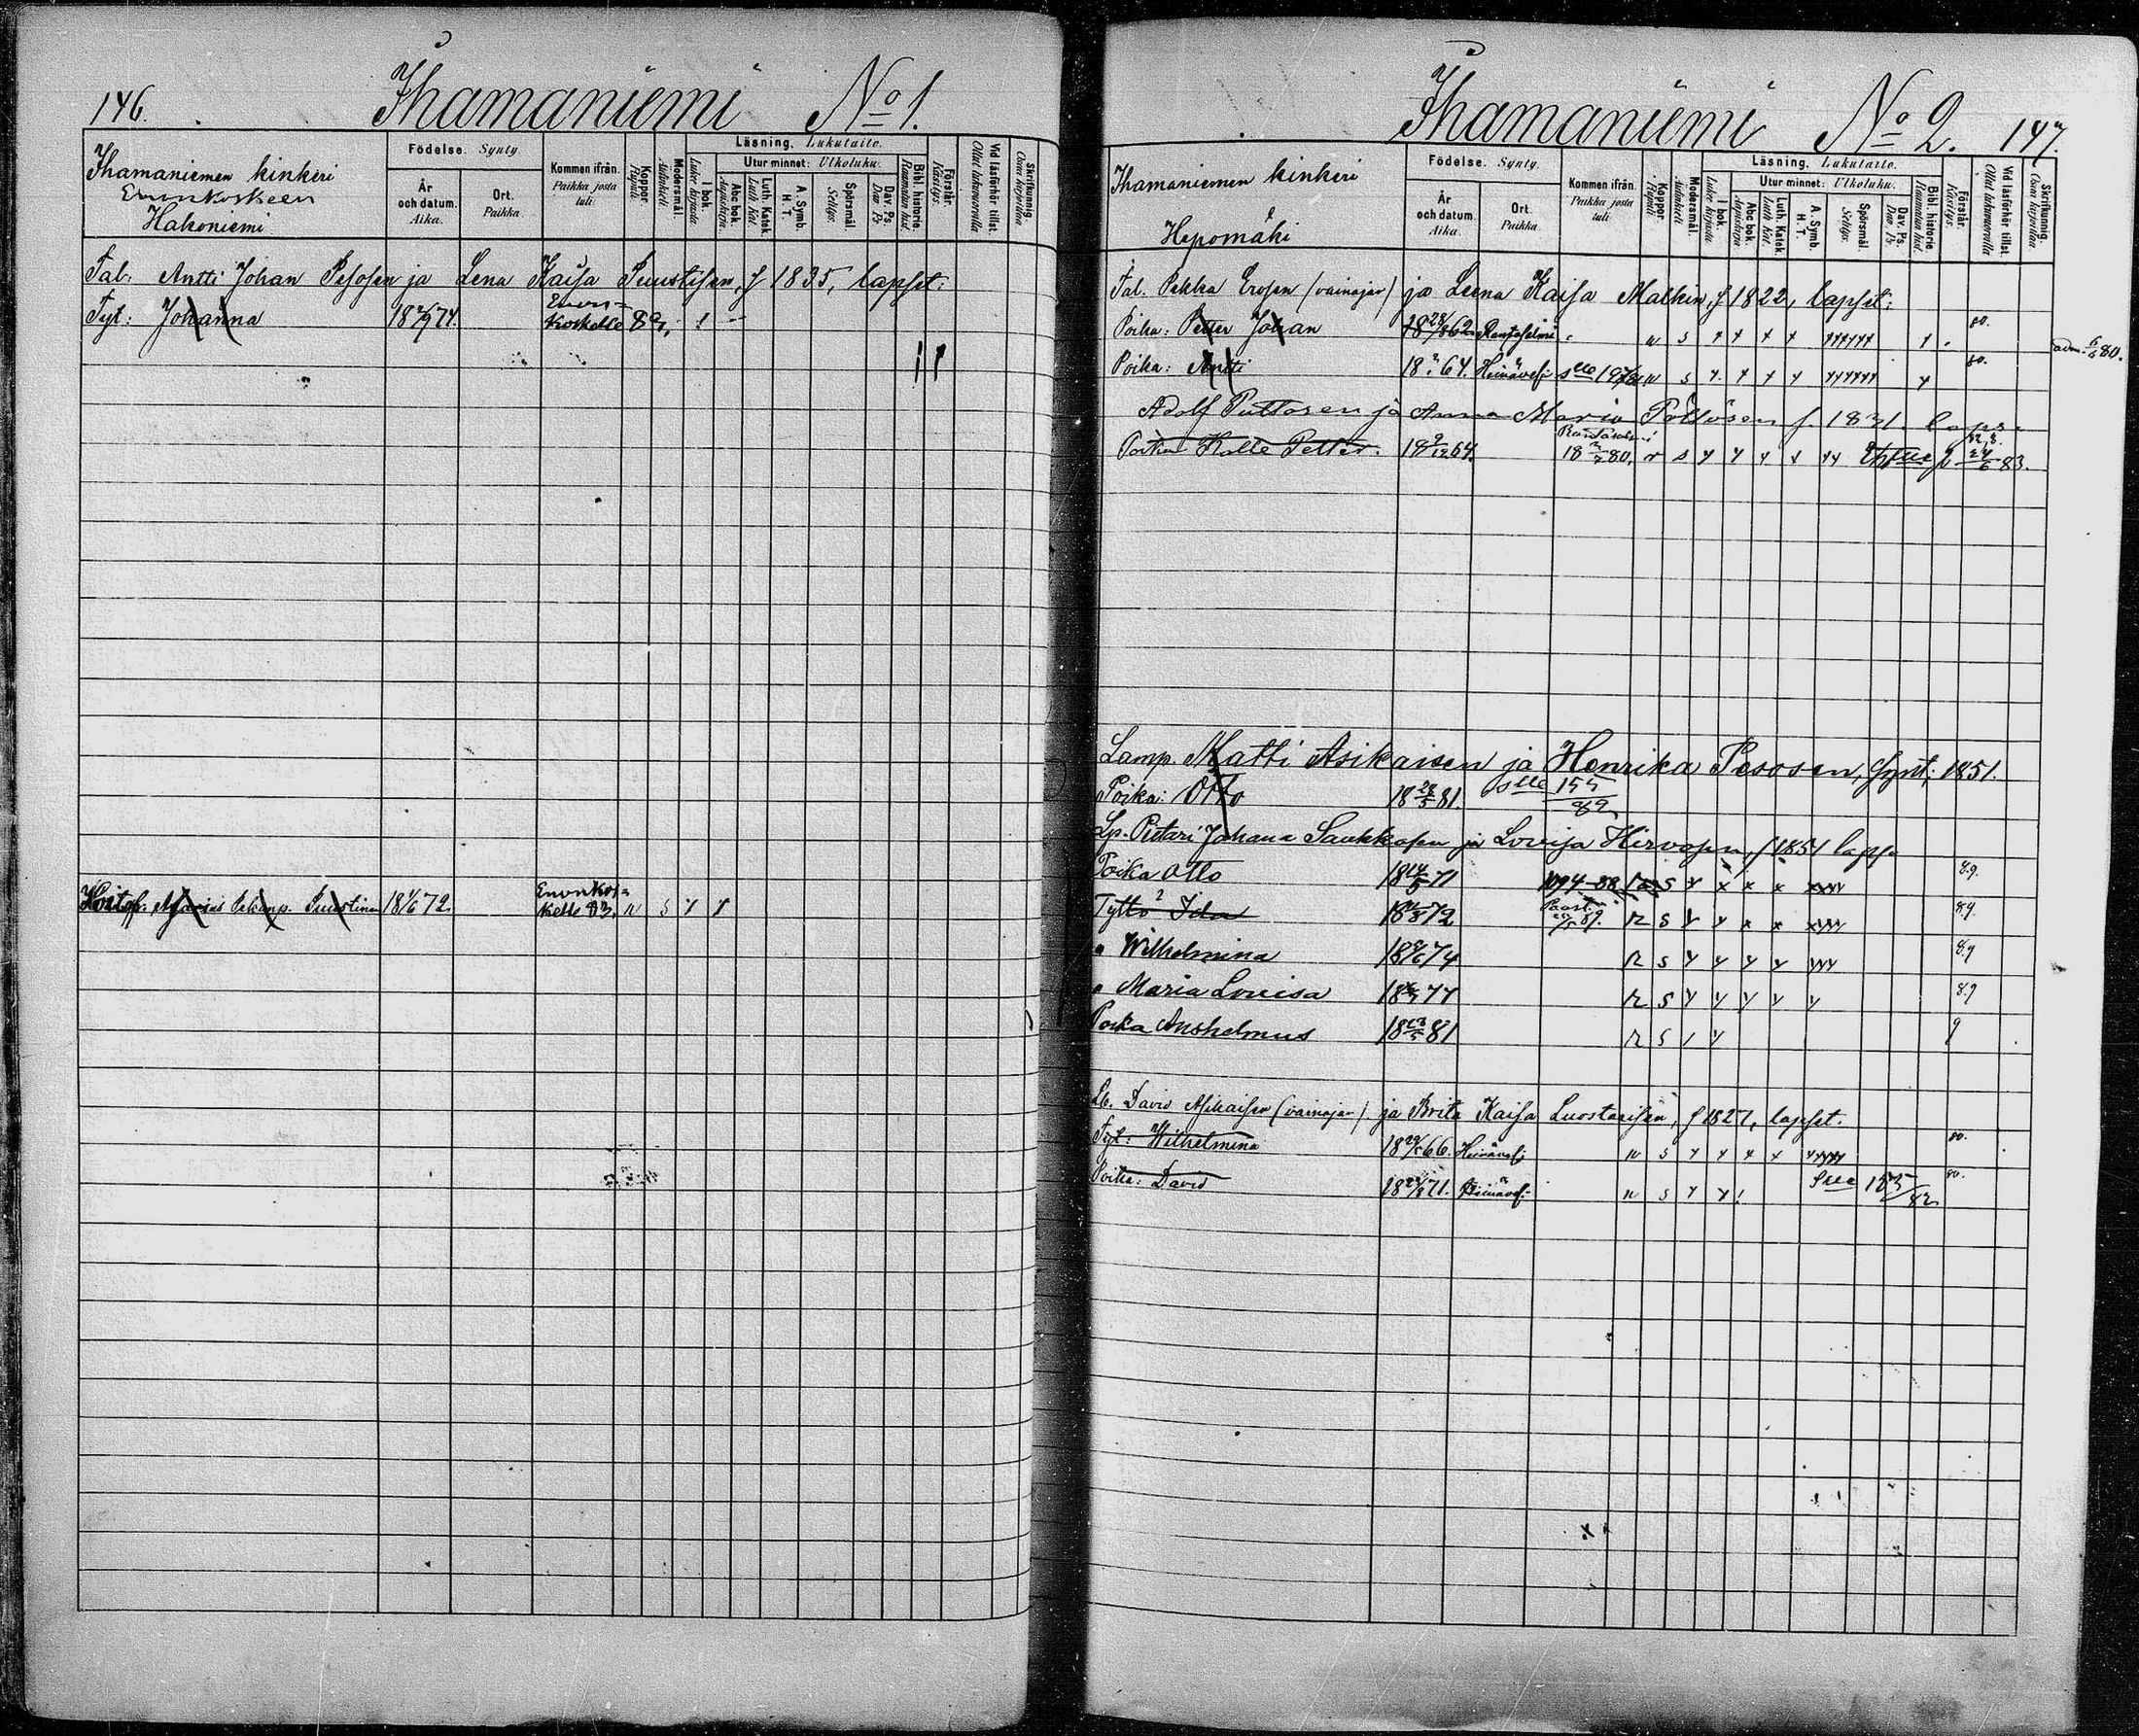 146.
Ihamaniemi No 1.
Ihamaniemen kinkeri
Enonkoskeen
Hakoniemi
Födelse. Synty.
År och datum. Aika.
Ort. Paikka.
Kommen ifrån. Paikka josta tuli.
Koppor. Rupuli
Modersmål. Äidinkieli
Läsning. Lukutaito.
I bok. Lukee kirjasta.
Utur minnet: Ulkoluku.
Abc bok. Aapiskirja.
Luth. Katek. Luth. Kat.
A. Symb. H. T.
Spörsmål. Selitys.
Dav. Ps. Dav. Ps.
Bibl. historie. Raamatun hist.
Förstår. Käsitys.
Vid läsförhör tillst. Ollut lukuvuorolla
Skrifkunnig. Osaa kirjoittaa
Tal: Antti Johan Pesosen ja Lena Kaisa Puustisen, f 1835, lapset:
Tyt: Johanna 18 74. Enonkoskelle 82,
18 1/6 72. Enonkoskelle 83. r s
Ihamaniemi No 2. 147.
Ihamaniemen kinkeri
Hepomäki
Födelse. Synty.
År och datum. Aika.
Ort Paikka.
Kommen ifrån. Paikka josta tuli
Koppor. Rupuli
Modersmål. Äidinkieli
Läsning. Lukutaito.
I bok. Lukee kirjasta.
Utur minnet: Ulkoluku.
Abc bok. Aapiskirja.
Luth. Katek. Luth. Kat.
A. Symb. H. T.
Spörsmål. Selitys.
Dav. Ps. Dav. Ps.
Bibl. historie. Raamatun hist.
Förstår. Käsitys.
Vid läsförhör tillst. Ollut lukuvuorolla
Skrifkunnig. Osaa kirjoittaa
Tal. Pekka Erosen (vainajan) ja Leena Kaisa Malkin, f 1822, lapset:
Poika: Petter Johan 18 62 Rantasalmi s 80. adm. 6/6 80.
Poika: Antti 18 64. Heinäves s 80.
Adolf Puttosen ja Anna Maria Pöllösen f. 1831 laps.
Poika Kalle Petter. 18 9/12 64. Rantasalmi 18 80. r s 82, 8. 24/6 83.
Lamp. Matti Asikaisen ja Henrika Pesosen, synt. 1851.
Poika: Otto 18 28/5 81. slle 155/89
Lp. Pietari Johana Saukkosen ja Lovisa Hirvosen, f 1851 laps.
Poika Otto 18 71 s x x x 8.9.
Tyttö Ida 18 72 89. r s x x 8.9.
" Wilhelmina 18 74 r s 8.9
" Maria Lovisa 18 77 r s 8.9
Poika Anshelmus 18 81 r s 9
David Asikaisen (vainajan) ja Brita Kaisa Luostarisen, f 1827, lapset.
Tyt: Wilhelmina 18 66. Heinäves s 80.
Poika: David 18 71. Heinäves s 80.